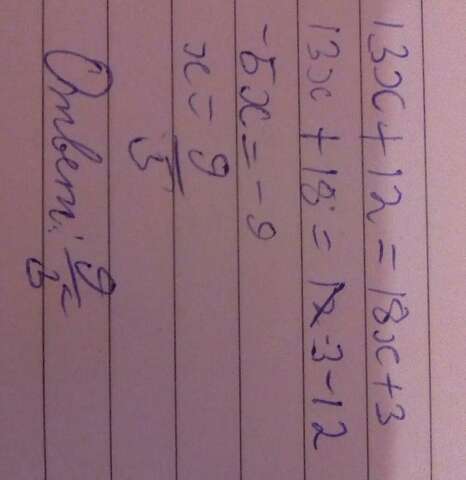 13x + 12 = 18x + 3
13x + 18 = 3 - 12
-5x = -9
x = 9/5
Ответ: 9/5